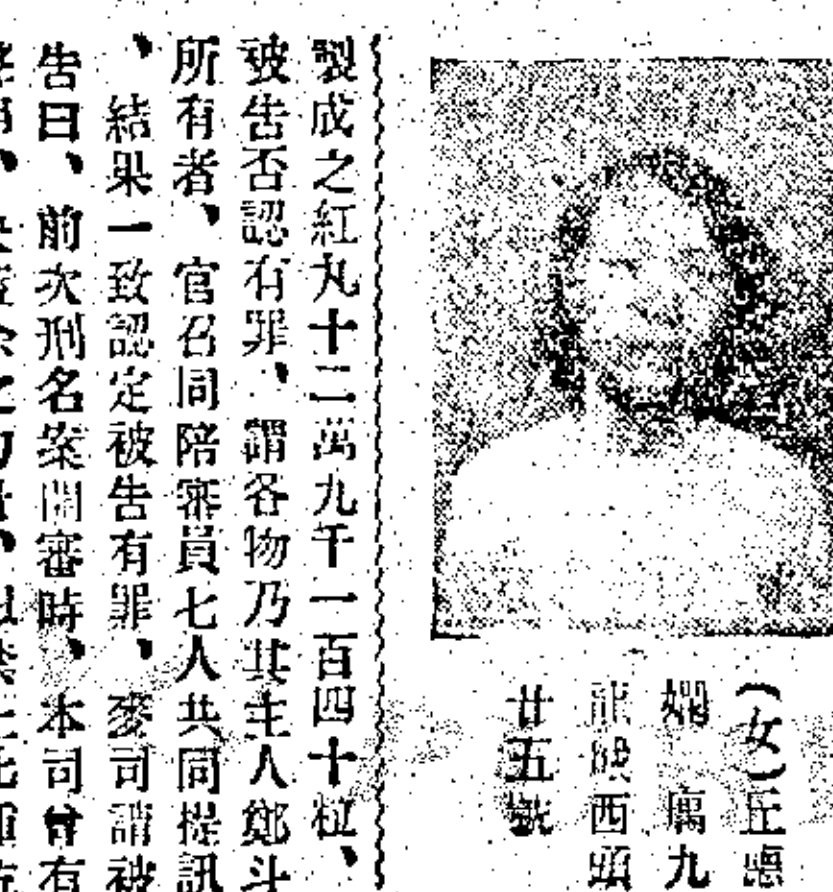 (女)丘德
嫻 廣九
龍峽西頭
廿五號
製成之紅丸十二萬九千一百四十粒、
被告否認有罪、謂各物乃其主人鄭斗
所有者、官召同陪審員七人共同提訊
、結果一致認定被告有罪、麥司謂被
告曰、前次刑名案開審時、本司曾有